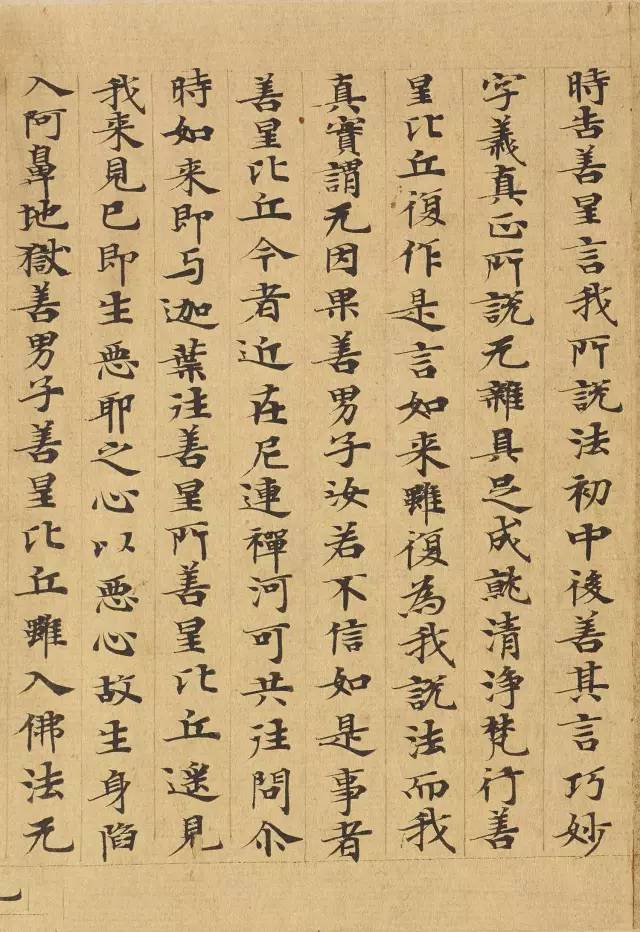 時告善星言我所説法初中後善其言巧妙
字義真正所說无雜具足成就清淨梵行善
星比丘復作是言如来雖復為我說法而我
真實謂无因果善男子汝若不信如是事者
善星比丘今者近在尼連禪河可共往問尒
時如来即与迦葉往善星所善星比丘遥見
我来見已即生惡耶之心以惡心故生身陷
入阿鼻地獄善男子善星比丘雖入佛法无